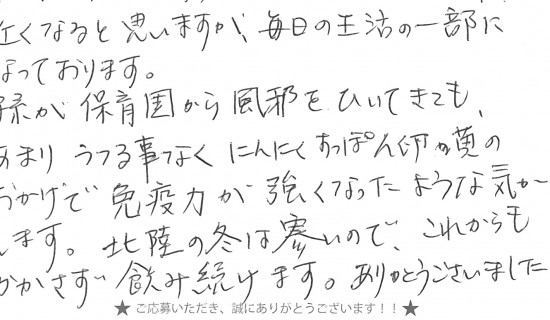 近くなると思いますが、毎日の生活の一部に
なっております。
孫が保育園から風邪をひいてきても、
あまりうつる事なくにんにくすっぽん卵黄の
おかげで免疫力が強くなったような気が
します。北陸の冬は寒いので、これからも
かかさず飲み続けます。ありがとうございました
★ ご応募いただき、誠にありがとうございます！！ ★